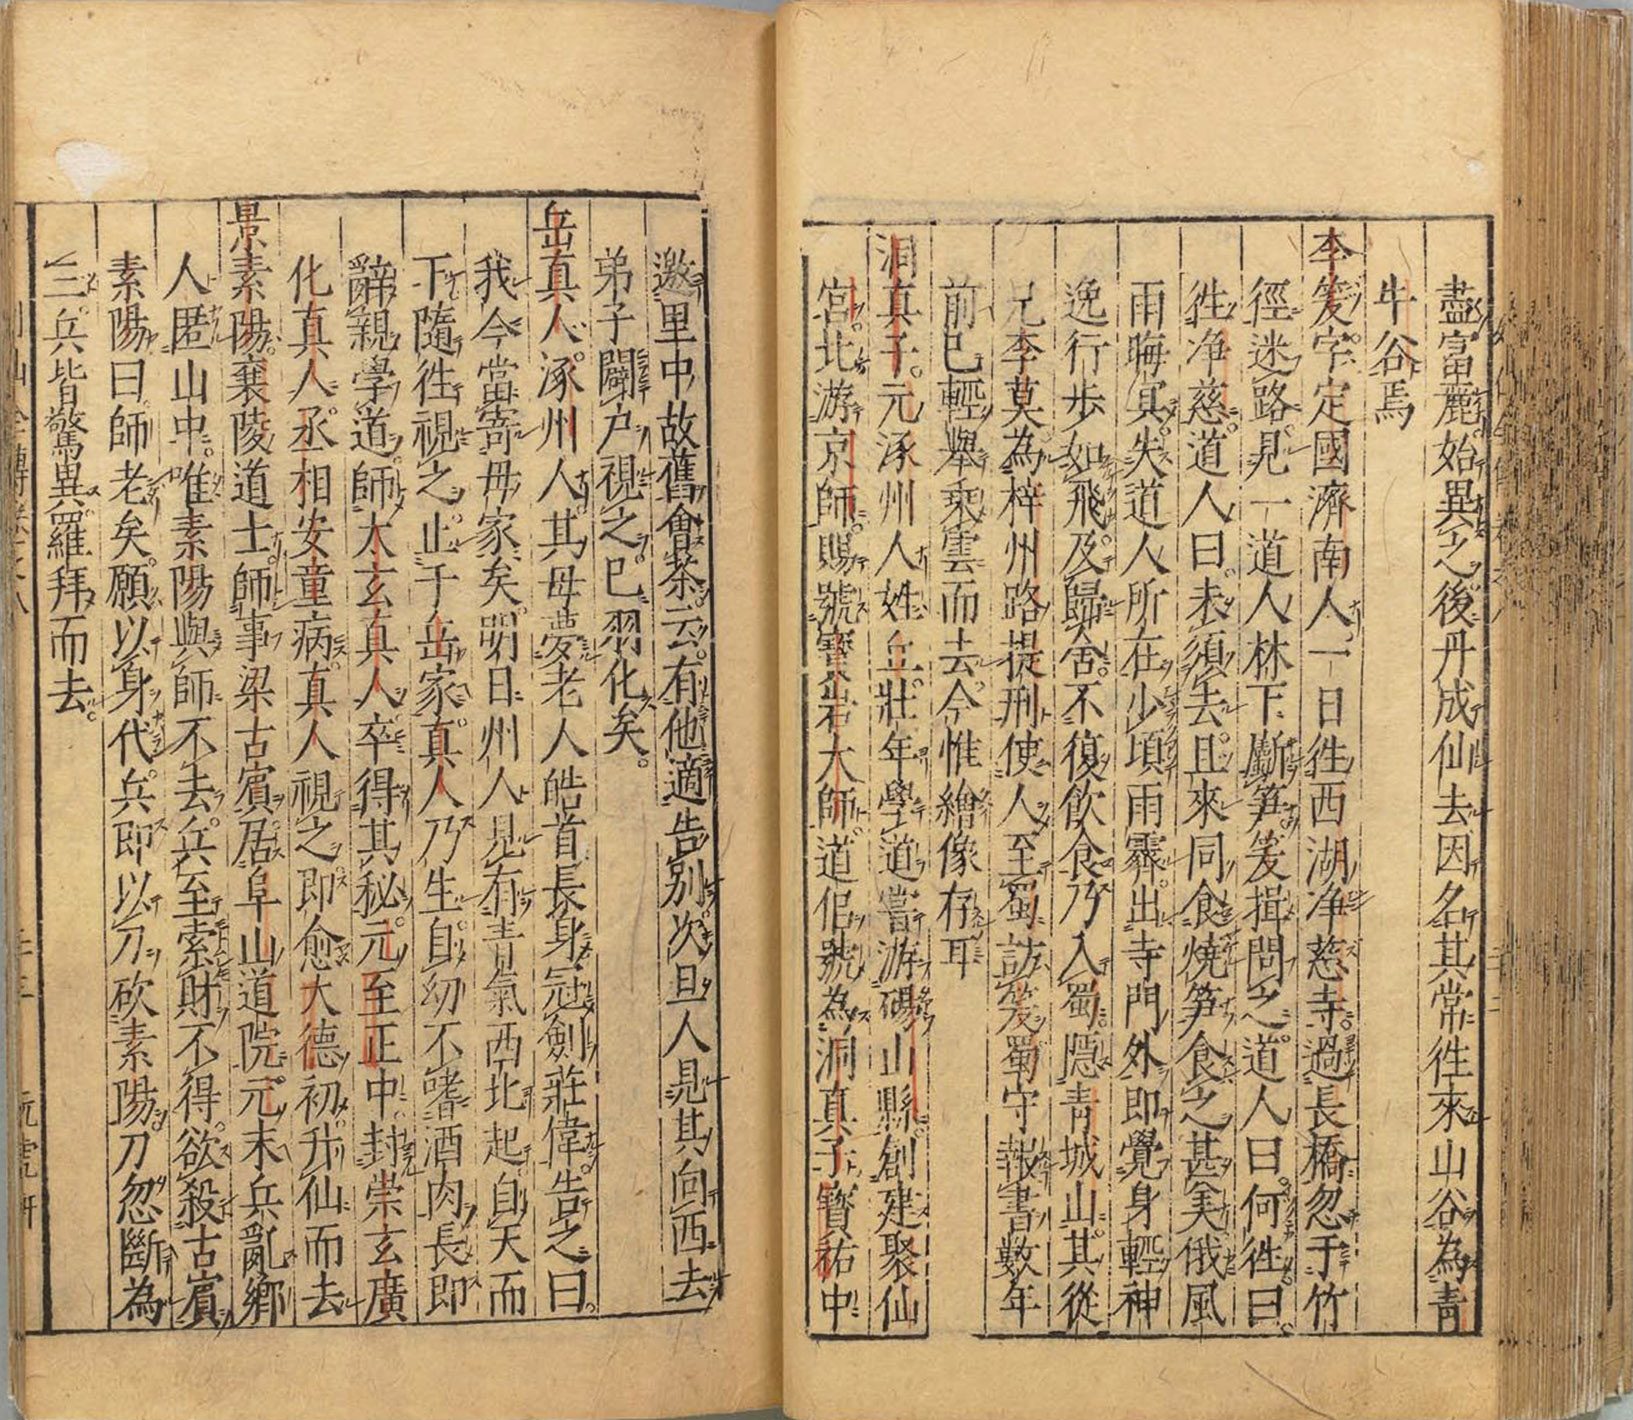 盡富麗始異之後丹成仙去因名其常徃來山谷為青
牛谷焉
李笈字定國濟南人一日徃西湖净慈寺過長橋忽于竹
徑迷路見一道人林下斸笋笈揖問之道人曰何徃曰
徃净慈道人曰未須去且來同食燒笋食之甚美俄風
雨晦冥失道人所在少頃雨霽出寺門外即覺身輕神
逸行歩如飛及歸舍不復飲食乃入蜀隱青城山其從
兄李莫為梓州路提刑使人至蜀訪笈蜀守報書數年
前巳輕舉乘雲而去今惟繪像存耳
洞真子元涿州人姓丘壯年學道嘗游碭山縣創建聚仙
宮北游京師賜號寳岩大師道侶號為洞真子寳祐中
邀里中故舊會茶云有他適告别次旦人見其向西去
弟子闢户視之巳羽化矣
岳真人涿州人其母夢老人皓首長身冠劍莊偉告之曰
我今當寄母家矣明日州人見有青氣西北起自天而
下隨徃視之止于岳家真人乃生自幼不嗜酒肉長即
辭親學道師大玄真人卒得其秘元至正中封崇玄廣
化真人丞相安童病真人視之即愈大德初升仙而去
景素陽襄陵道士師事梁古賓居阜山道院元末兵亂鄉
人匿山中唯素陽與師不去兵至索財不得欲殺古賓
素陽曰師老矣願以身代兵即以刀砍素陽刀忽斷為
三兵皆驚異羅拜而去